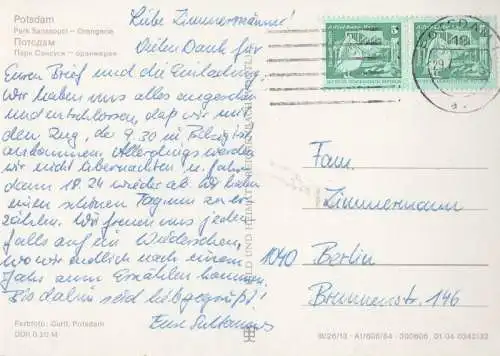 Potsdam
Park Sanssouci — Orangerie
Потсдам
Парк Сансуси — оранжерея
Liebe Zimmermänner!
Vielen Dank für
Euren Brief und die Einladung.
Wir haben uns alles angesehen
und entschlossen, daß wir mit
dem Zug, der 9.30 in Belzig ist
ankommen. Allerdings werden
wir nicht übernachten u. fahren
dann 18.24 wieder ab. Wir haben
einen schönen Tag uns zu er-
zählen. Wir freuen uns jeden-
falls auf ein Wiedersehen,
wo wir endlich nach einem
Jahr zum Erzählen kommen.
Bis dahin seid liebgegrüßt!
Eure
Fam.
Zimmermann
1040 Berlin
Brunnenstr. 146
POTSDAM
5
5
BILD UND HEIMAT REICHENBACH
Farbfoto: Gutil, Potsdam
DDR 0,20 M
III/26/13 · A1/606/84 · 300606 01 04 0342/32